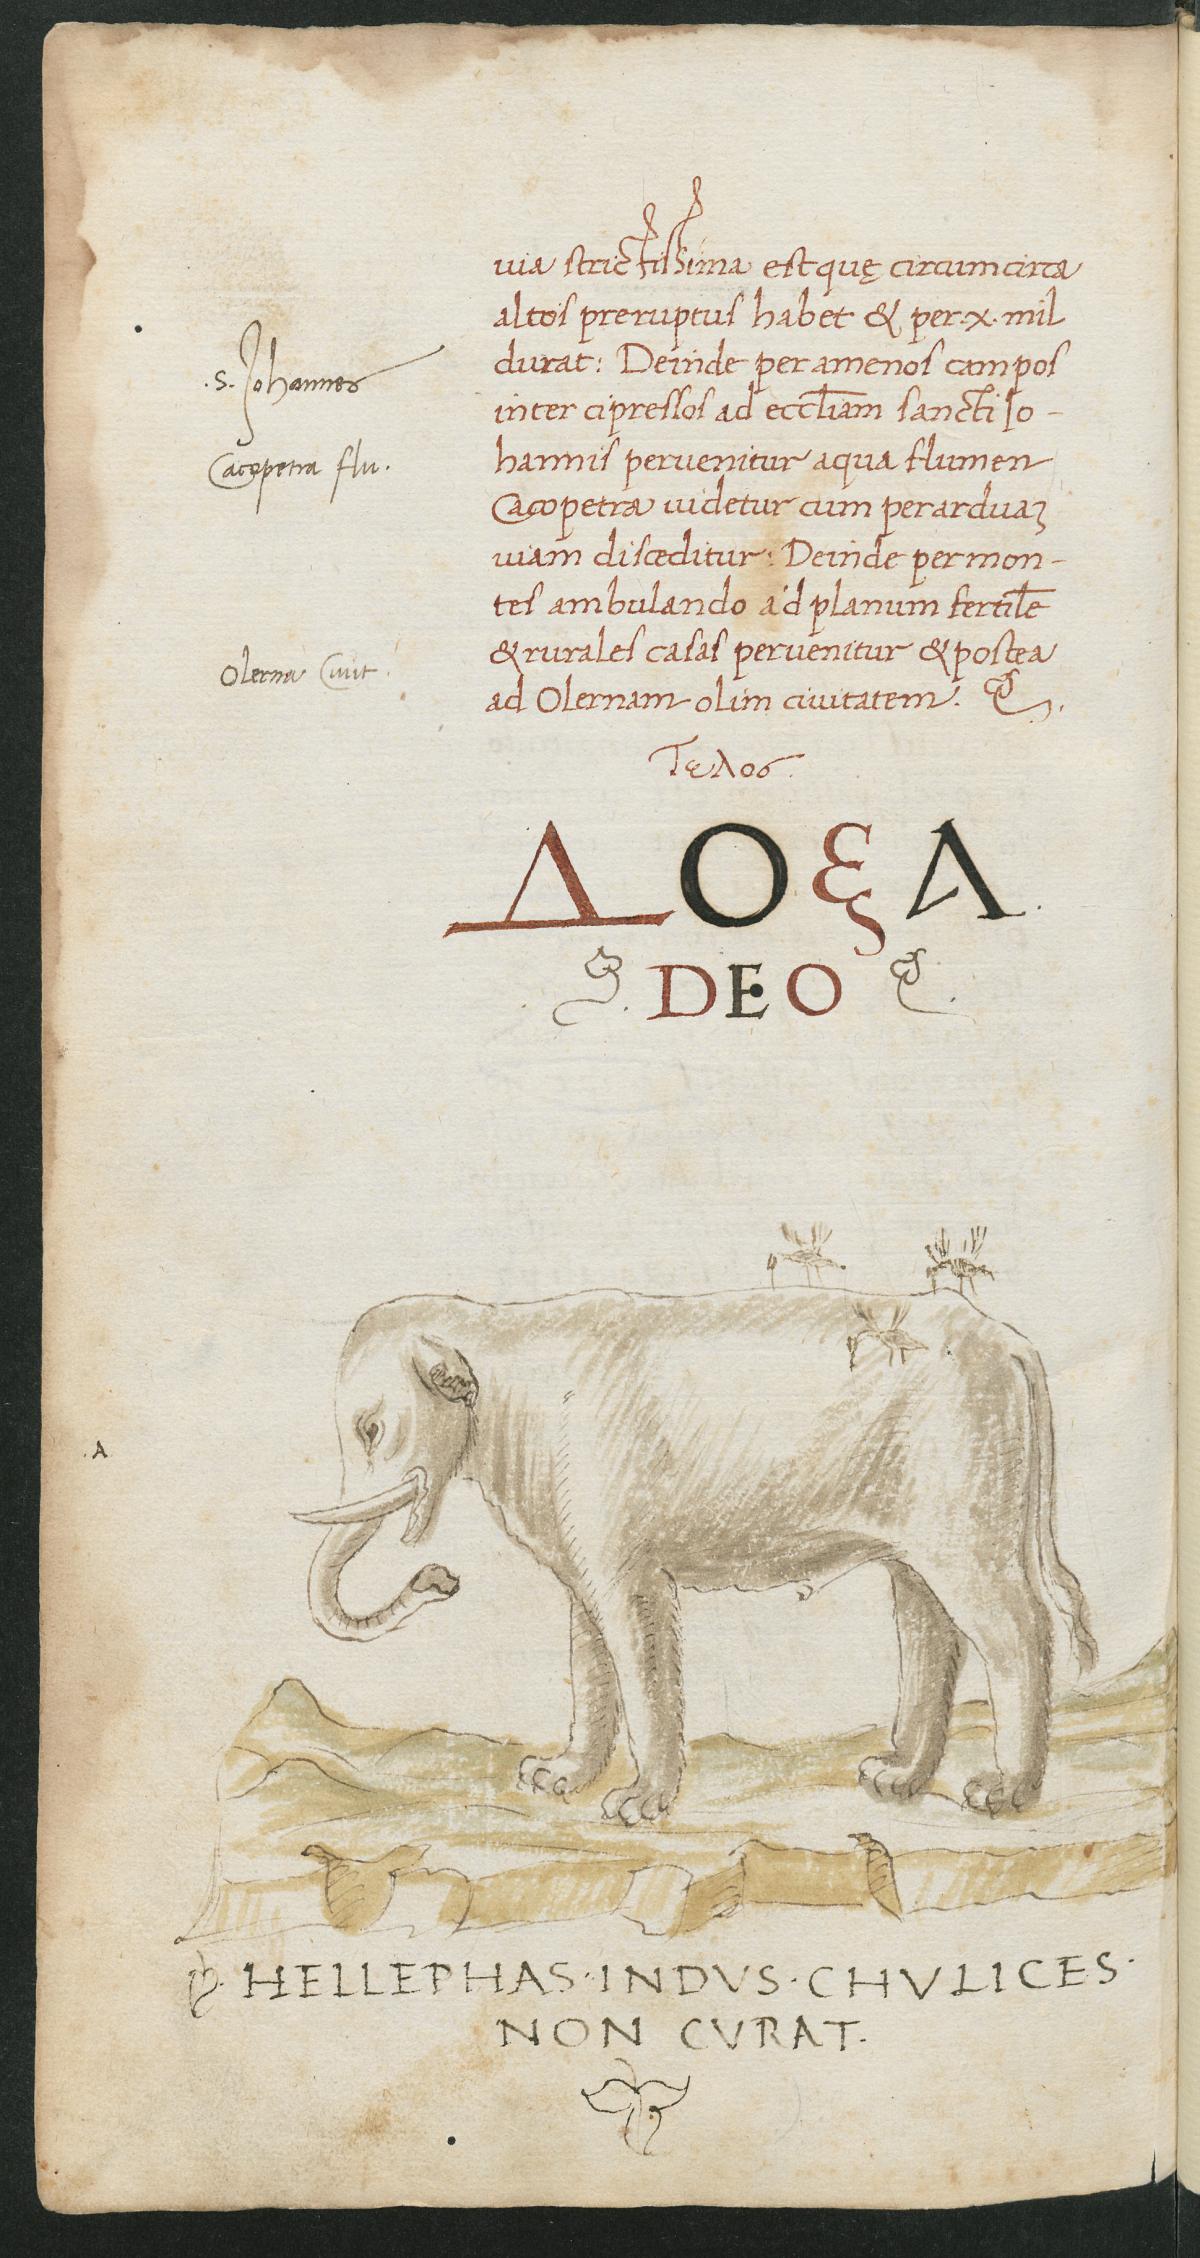 uia strictissima est quę circumcirca
altos preruptus habet & per .x. mil
durat: Deinde per amenos campos
inter cipressos ad eccl̅iam sancti Jo-
hannis peruenitur aqua flumen
Cacopetra uidetur cum per arduaꝫ
uiam disceditur: Deinde per mon-
tes ambulando ad planum fertile̅
& rurales casas peruenitur & postea
ad Olernam olim ciuitatem.
.S. Johannes
Cacopetra flu.
Olerna Ciuit.
Τελος.
ΔΟξΑ.
DEO
.A
HELLEPHAS·INDVS·CHVLICES·
NON CVRAT.